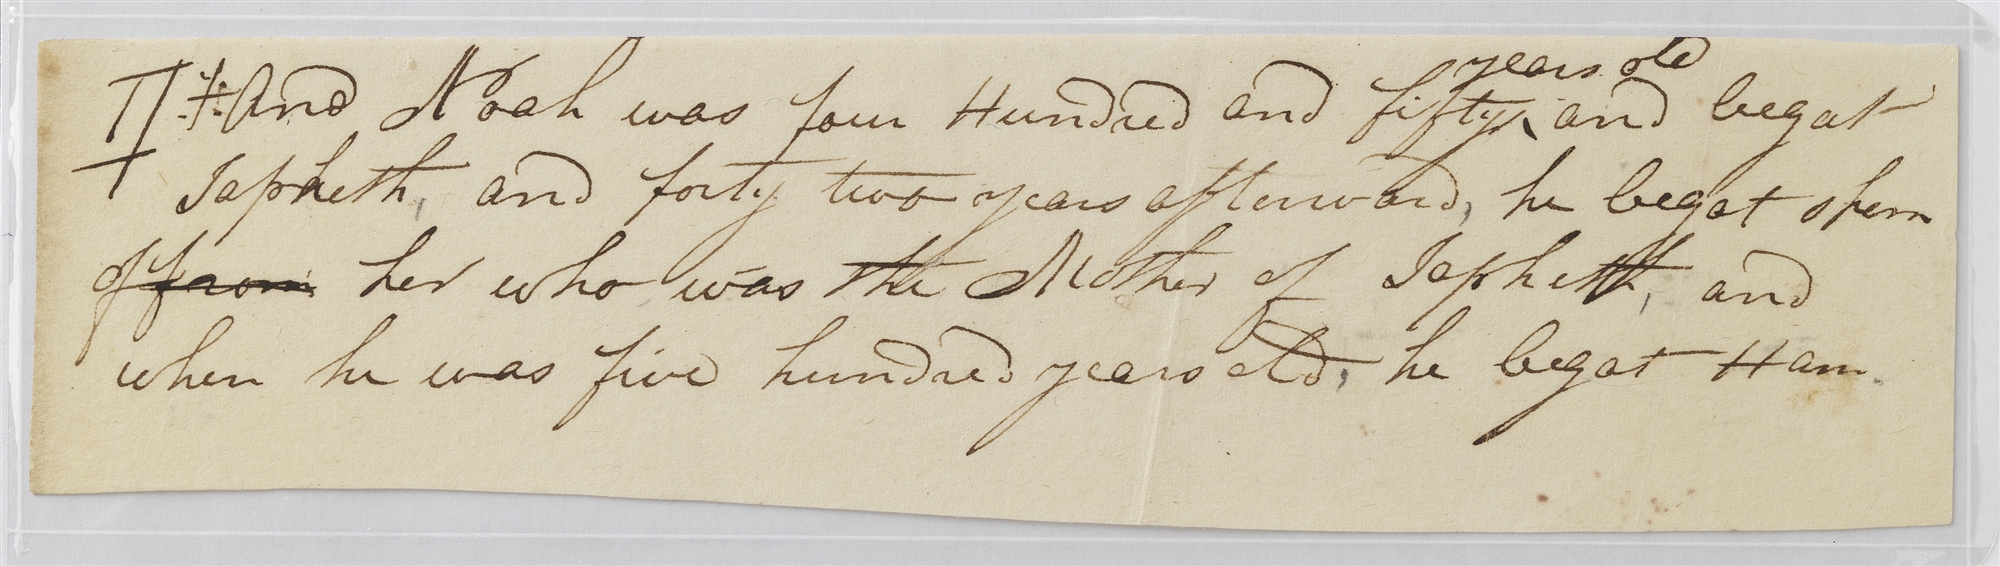 And Noah was four Hundred and fifty years old and begat
Japheth, and forty two years afterward, he begat Shem
of from her who was the Mother of Japheth, and
when he was five hundred years old, he begat Ham.